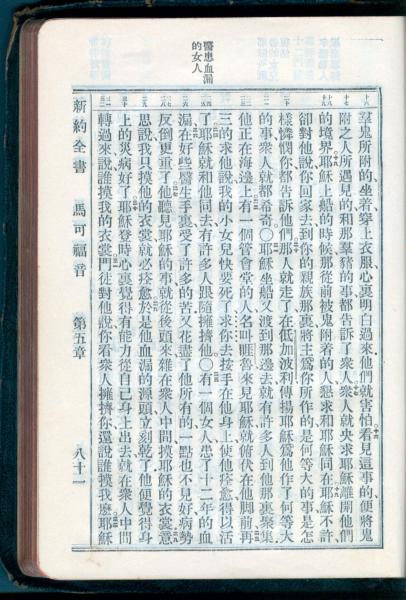 醫患血漏
的女人
羣鬼所附的、坐着、穿上衣服、心裏明白過來、他們就害怕、看見這事的、便將鬼
附之人所遇見的、和那羣豬的事、都告訴了衆人、衆人就央求耶穌離開他們
的境界、耶穌上船的時候、那從前被鬼附着的人、懇求和耶穌同在、耶穌不許、
卻對他說、你回家去、到你的親族那裏、將主爲你所作的、是何等大的事、是怎
樣憐憫你、都告訴他們、那人就走了、在低加波利、傳揚耶穌爲他作了何等大
的事、衆人就都希奇○耶穌坐船、又渡到那邊去、就有許多人到他那裏聚集、
他正在海邊上、有一個管會堂的人、名叫睚魯、來見耶穌、就俯伏在他脚前、再
三的求他說、我的小女兒快要死了、求你去按手在他身上、使他痊愈、得以活
了、耶穌就和他同去、有許多人跟隨擁擠他○有一個女人、患了十二年的血
漏、在好些醫生手裏、受了許多的苦、又花盡了他所有的、一點也不見好、病勢
反倒更重了、他聽見耶穌的事、就從後頭來、雜在衆人中間、摸耶穌的衣裳、意
思說、我只摸他的衣裳、就必痊愈、於是他血漏的源頭、立刻乾了、他便覺得身
上的災病好了、耶穌登時心裏覺得有能力從自己身上出去、就在衆人中間
轉過來說、誰摸我的衣裳、門徒對他說、你看衆人擁擠你、還說誰摸我麼、耶穌
新約全書 馬可福音 第五章 八十一